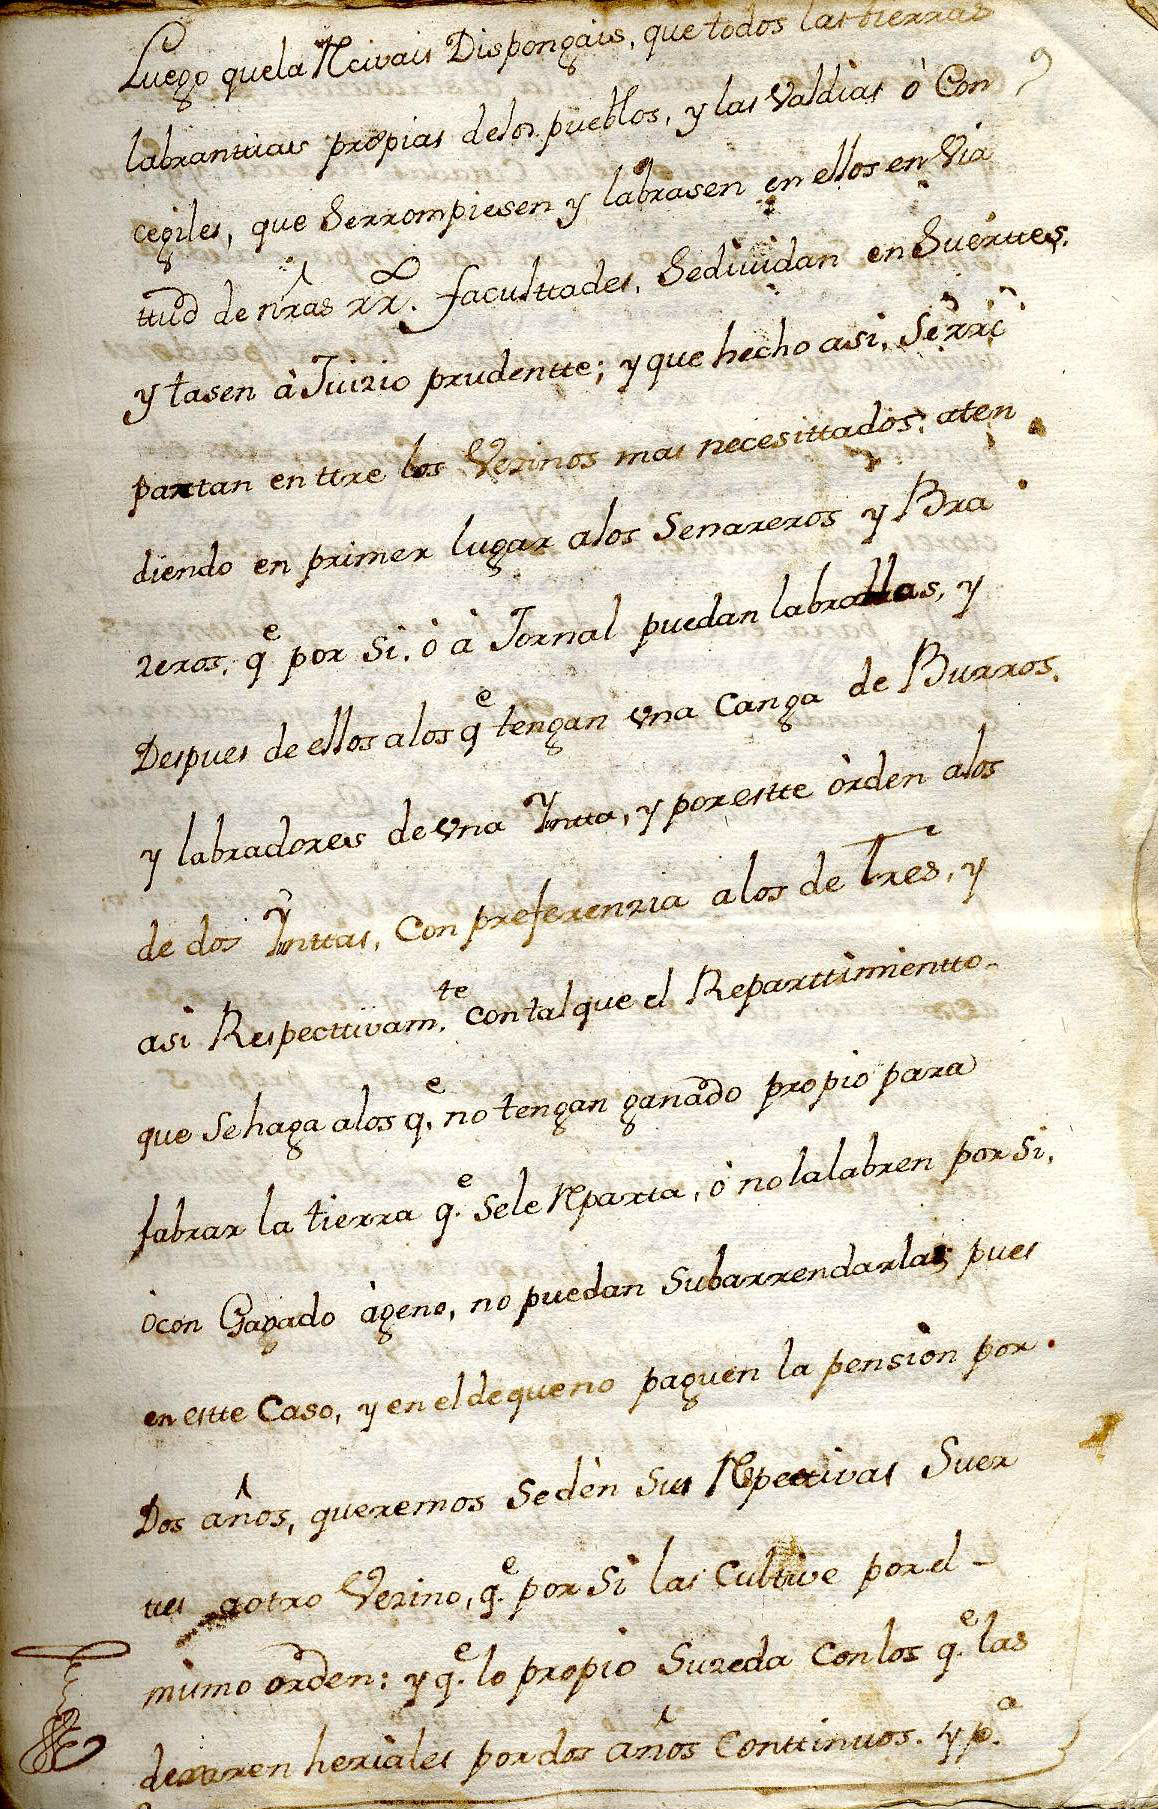 Luego quela Rcivais Dispongais, que todos las tierras
labrantuias propias delos pueblos, y las Valdias ò Con
cegiles, que Serrompiesen y labrasen en ellos en Via
ttud de nr̃as rr̃. faculttades, Sedividan en Suerttes,
y tasen à Juizio prudentte; y que hecho asi, Se rre
partan enttre los Vezinos mas necesittados; aten
diendo en primer lugar alos Senareros y Bra
zeros, qᵉ por Si, ò à Jornal puedan labrallas, y
Despues de ellos alos qᵉ tengan vna Canga de Burros,
y labradores de vna Yntta, y porestte òrden alos
de dos Ynttas, Con preferenzia alos de Tres, y
asi Respecttivam.ᵗᵉ Contalque el Reparttimientto-
que Sehaga alos q.ᵉ no tengan ganado propio para
labrar la tierra q.ᵉ Sele Rparta, ò nolalabren por Si,
òcon Ganado àgeno, no puedan Subarrendarlas pues
en estte Caso, y en eldequeno paguen la pensiòn por
Dos años, queremos Sedèn Sus Rpecttivas Suer
ttes aotro Vezino, q.ᵉ por Si las Cultive por el-
mismo orden: y q.ᵉ lo propio Suzeda Conlos q.ᵉ las
dexaren heriales pordos años Conttinuos. y p.ᵃ